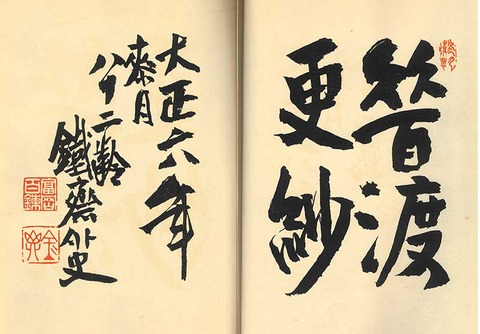 渡
更紗
大正六年
月
八十二齢
鐵齋外史
富岡
百錬